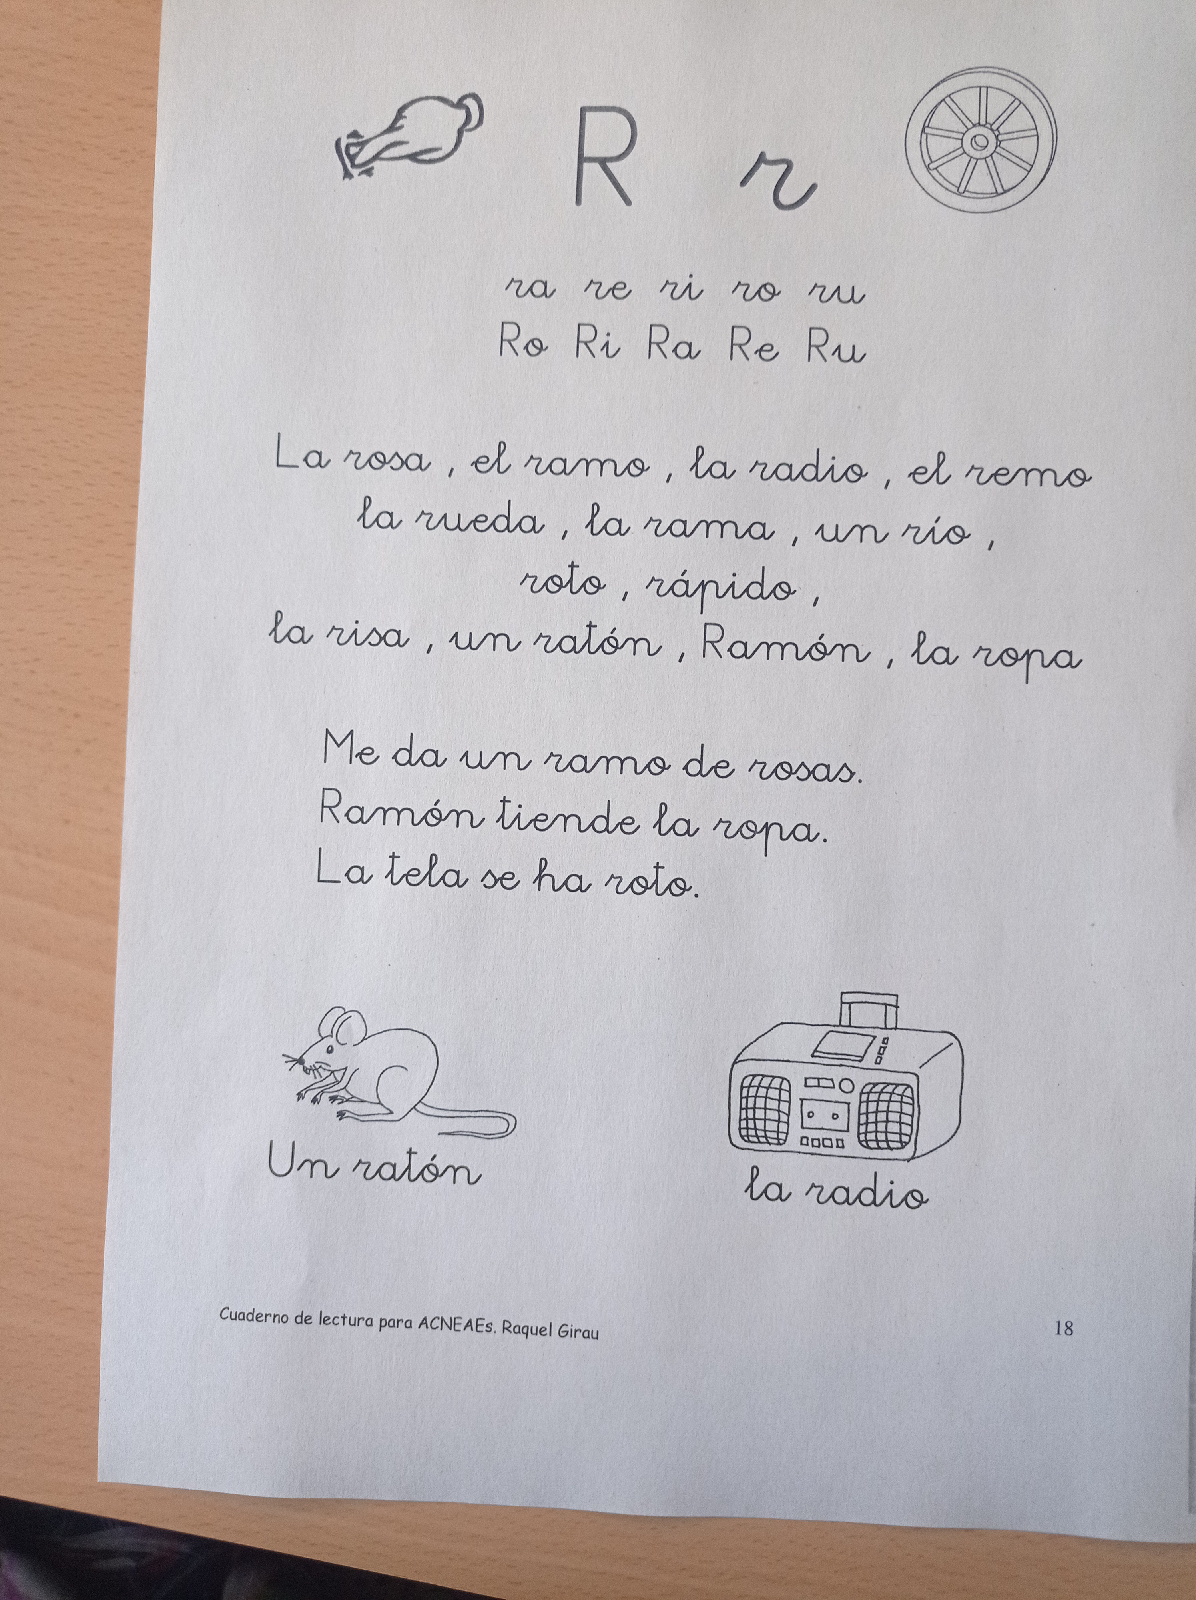 R r
ra re ri ro ru
Ro Ri Ra Re Ru
La rosa , el ramo , la radio , el remo
la rueda , la rama , un río ,
roto , rápido ,
la risa , un ratón , Ramón , la ropa
Me da un ramo de rosas.
Ramón tiende la ropa.
La tela se ha roto.
Un ratón
la radio
Cuaderno de lectura para ACNEAEs. Raquel Girau
18